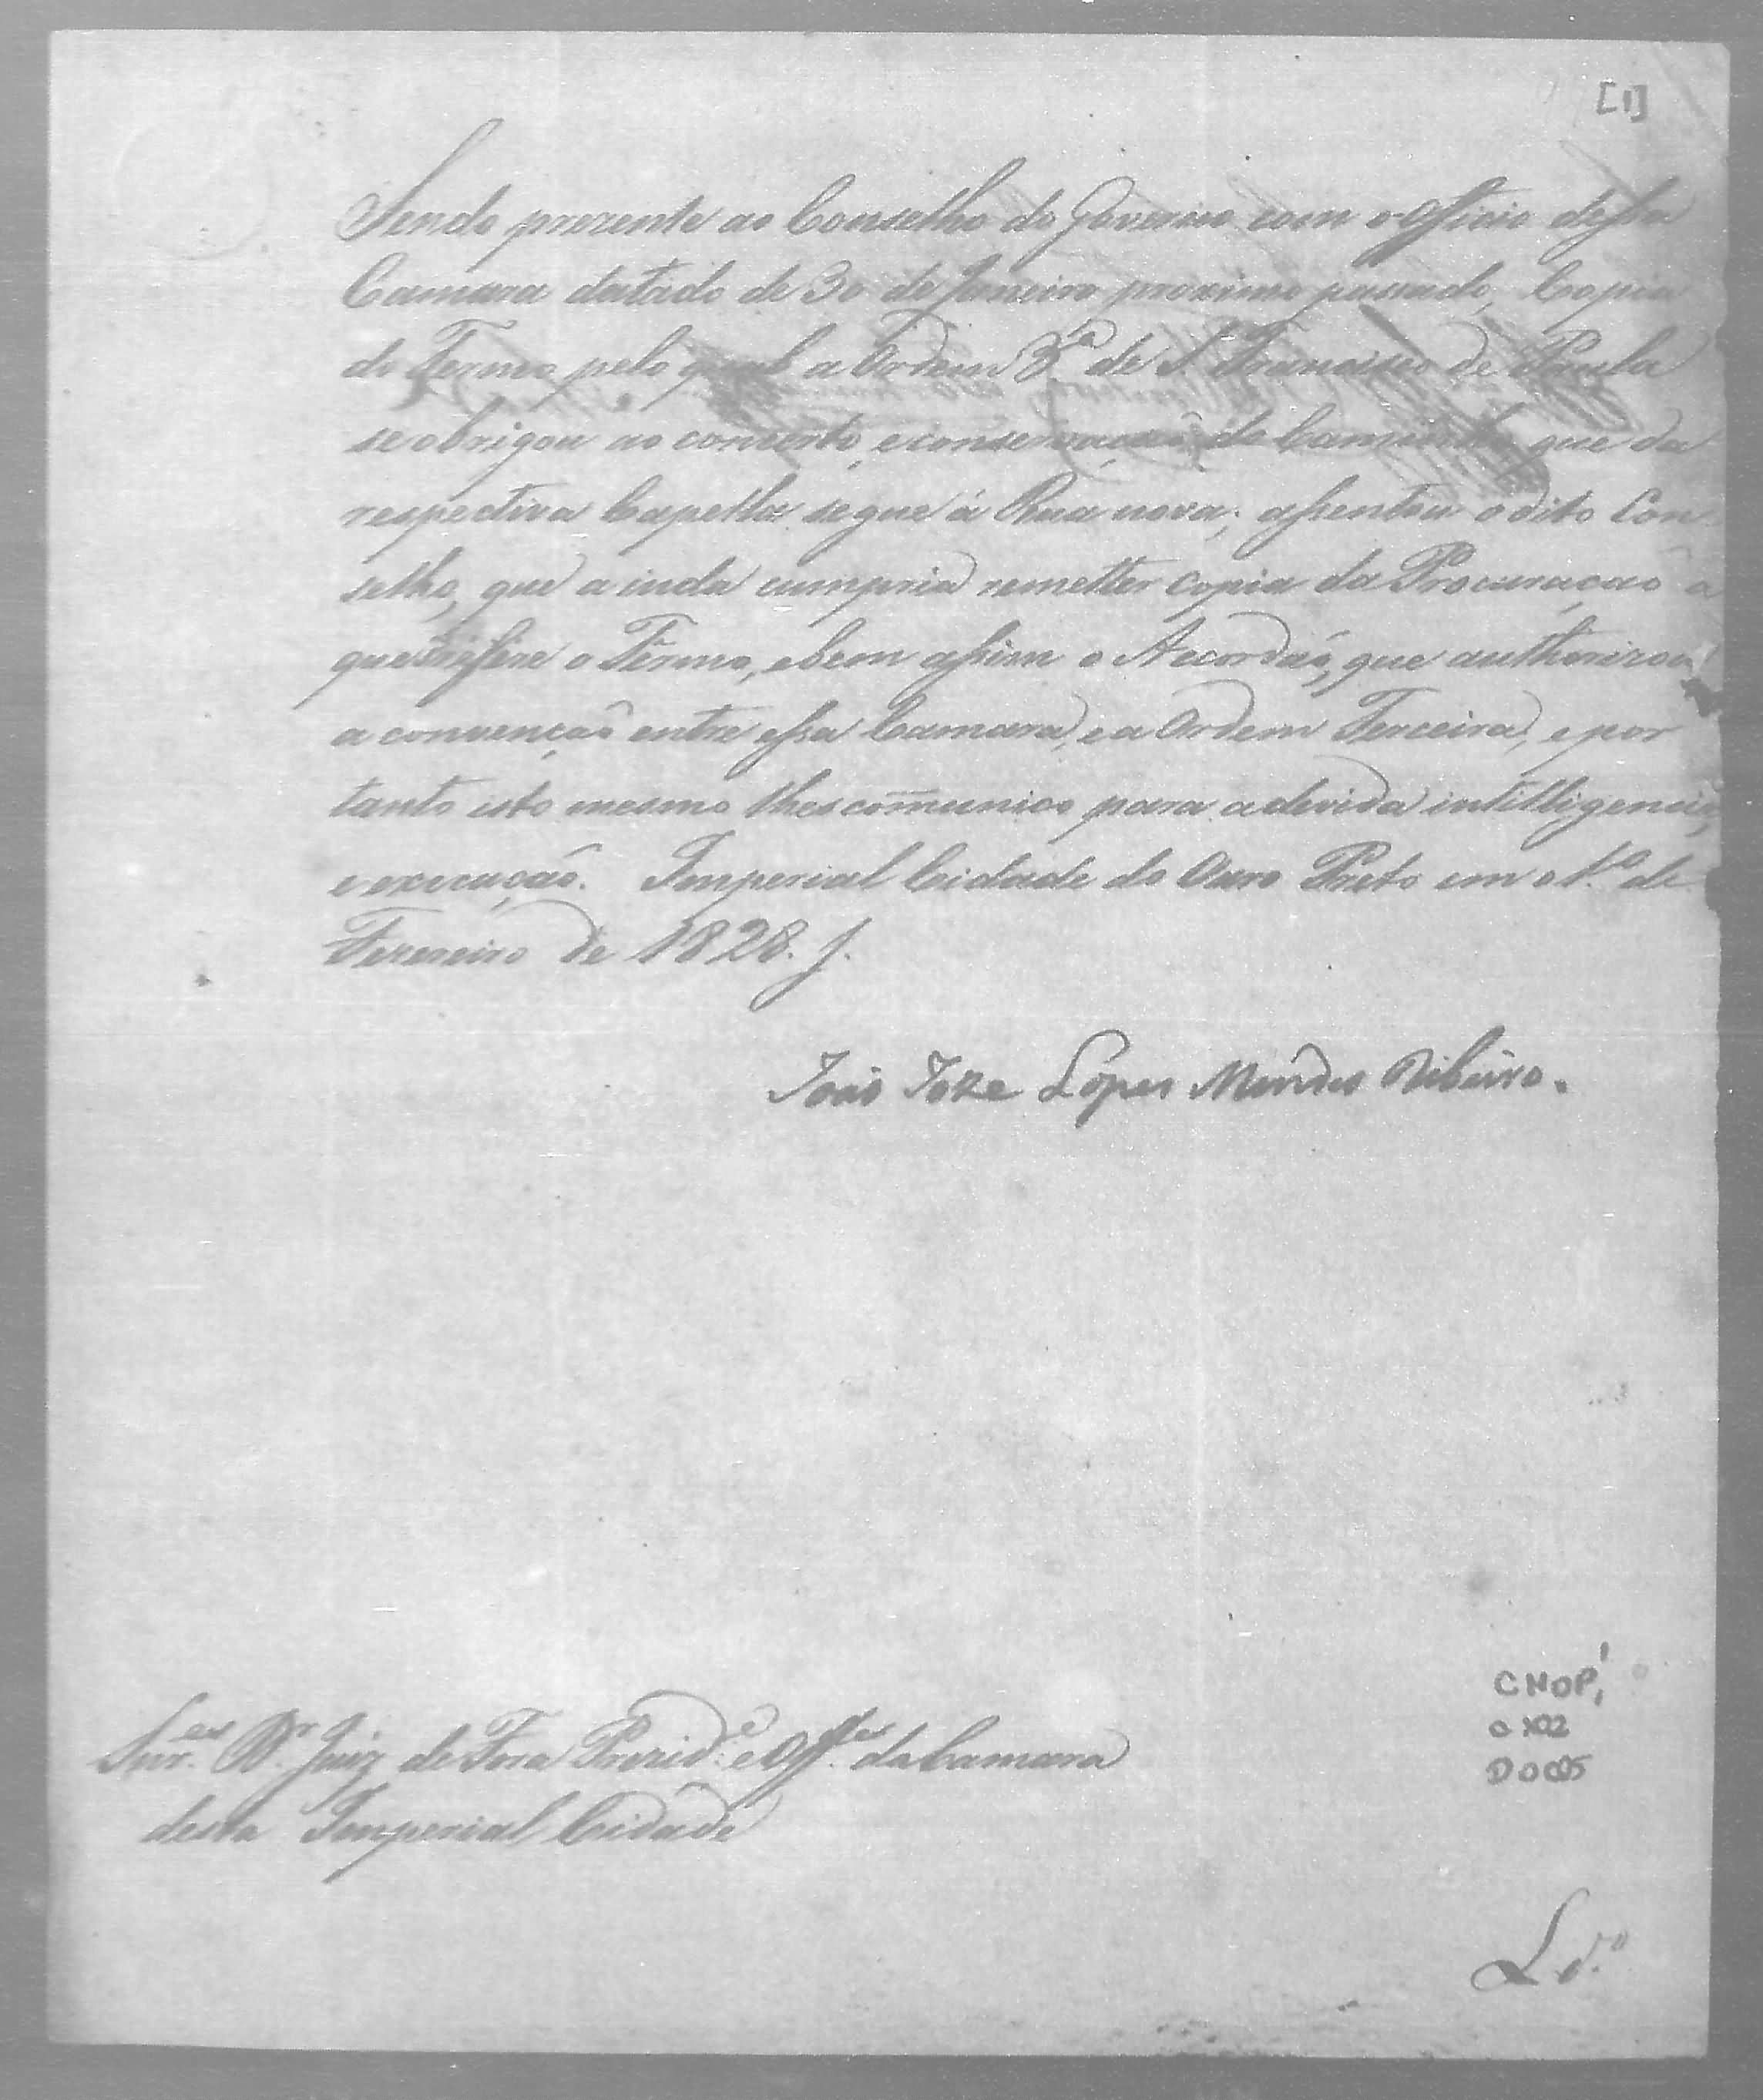 [1]
Sendo prezente ao Conselho do Governo com o officio dessa
Camara datado de 30 de Janeiro proximo passado, Copia
do Termo pelo qual a Ordem 3.ª de S. Francisco de Paula
se obrigou ao concerto, e conservação do Caminho, que da
respectiva Capella segue á Rua nova; assentou o dito Con
selho, que a inda cumpria remetter copia da Procuração a
que refere o Termo, e bem assim o Acordão, que authorizou
a convenção entre essa Camara, e a Ordem Terceira, e por
tanto isto mesmo lhes comunico para a devida intelligencia,
e execução. Imperial Cidade do Ouro Preto em o 1.º de
Fevereiro de 1828.
João Joze Lopes Mendes Ribeiro.
Snr.es Dr. Juiz de Fora Prezid.e e Off.es da Camara
desta Imperial Cidade
CMOP
C X02
DOC05